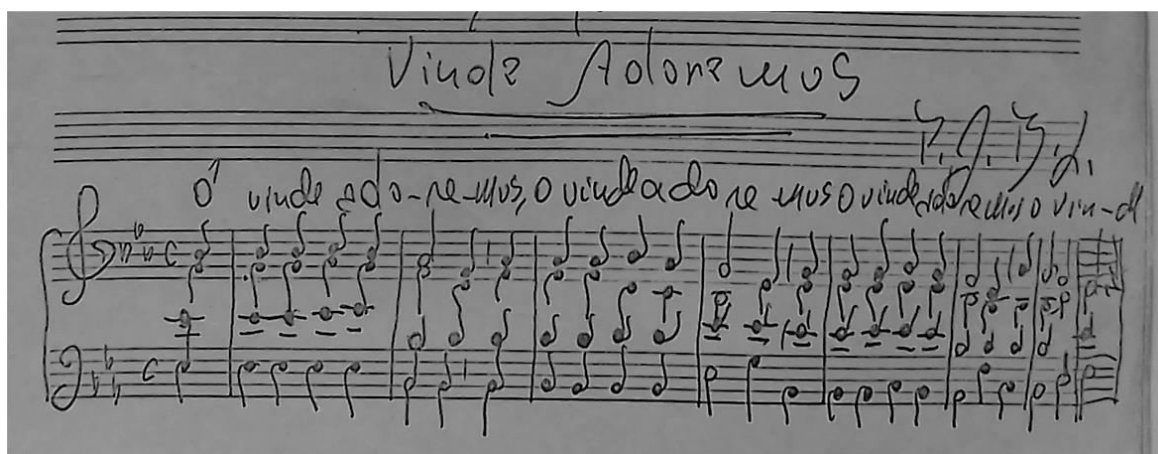 Vinde Adoremos
Ó vinde ado-re-mus, o vinde adore mus o vinde adoremus o vin-de